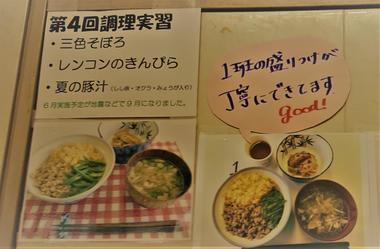 第4回調理実習
・三色そぼろ
・レンコンのきんぴら
・夏の豚汁(ししとう・オクラ・みょうが入り)
6月実施予定が台風などで9月になりました。
1班の盛りつけが
丁寧にできてます
good!
1